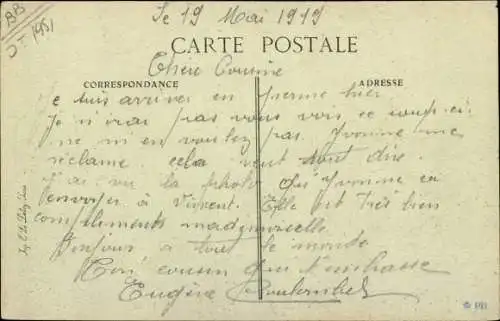 BB
Le 19 Mai 1919
CARTE POSTALE
Chère Cousine
CORRESPONDANCE
ADRESSE
Je suis arriver en hier
Je n'irai pas vous voir ce coup-ci
ne m'en voulez pas. Yvonne me
réclame. cela veut tout dire.
J'ai vu la photo qu'Yvonne a
envoyer à Vincent. Elle est très bien
compliments mademoiselle
Bonjour à tout le monde
Ton cousin qui t'embrasse
Eugène